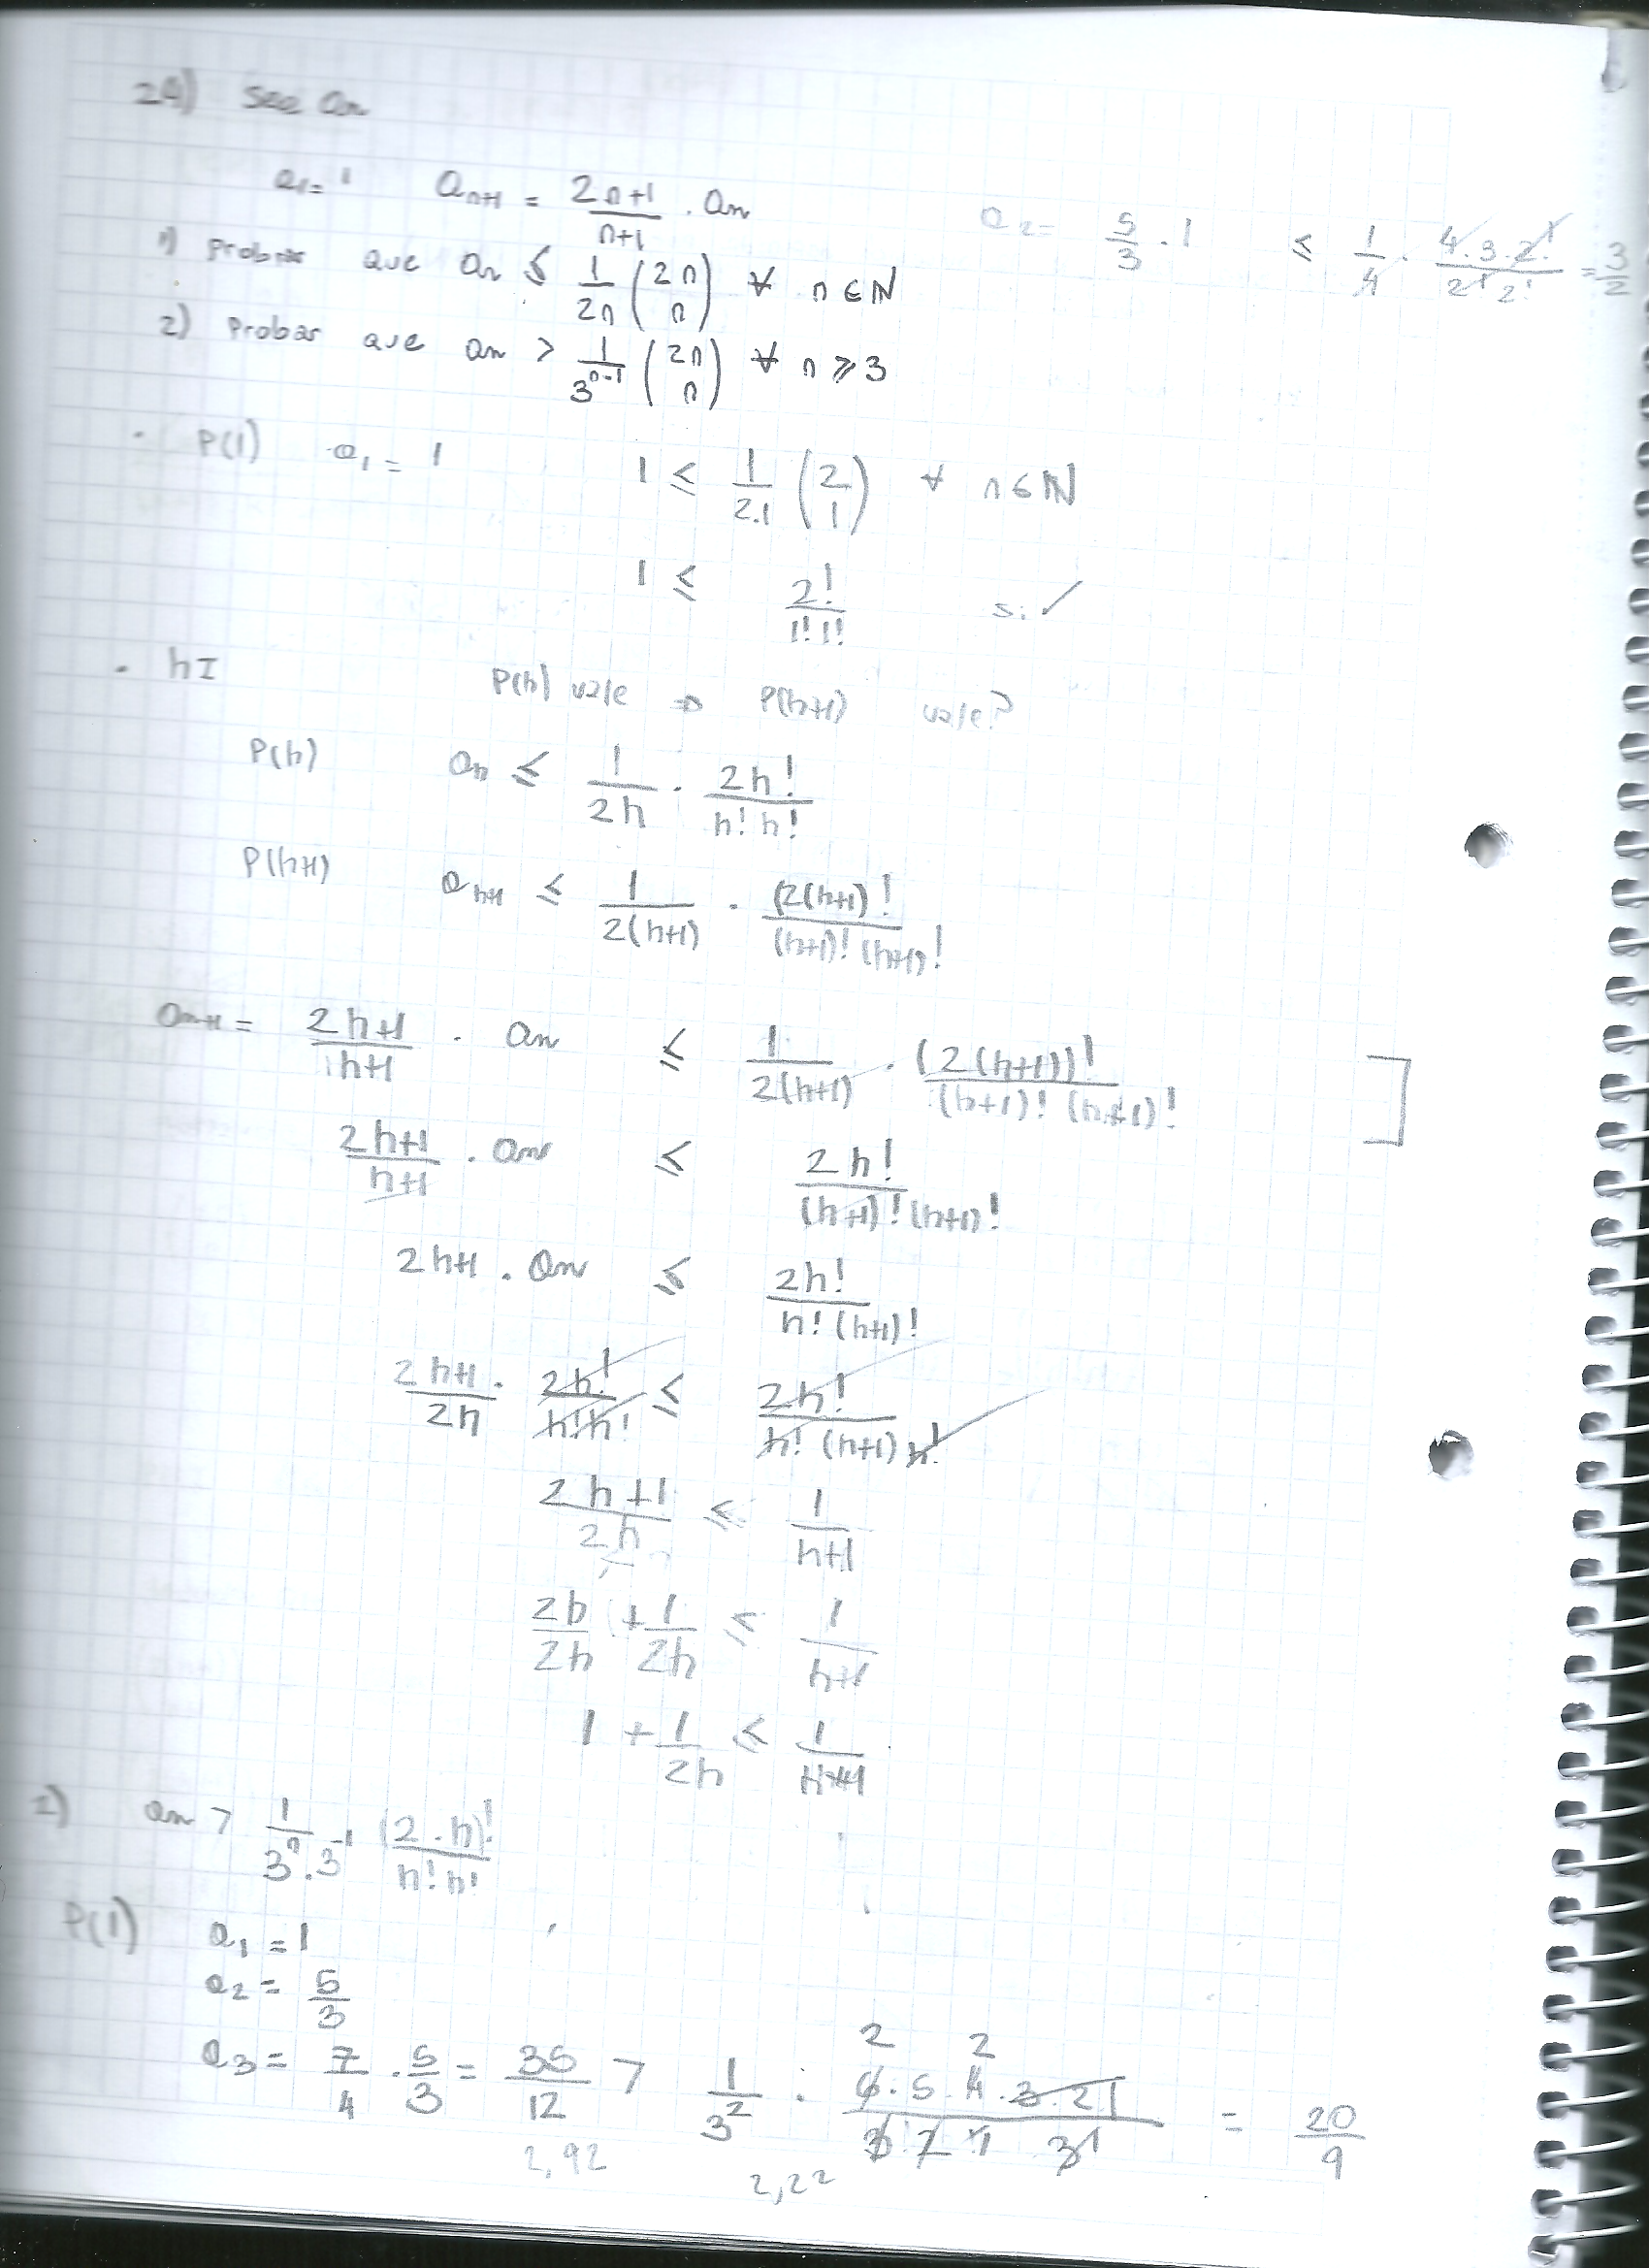 24) Sea an
a1 = 1 an+1 = 2n+1/n+1 . an
1) Probar que an ≤ 1/2n (2n n) ∀ n ∈ N
a2 = 5/3 . 1 ≤ 1/4 . 4.3.2!/2! 2! = 3/2
2) Probar que an > 1/3^(n-1) (2n n) ∀ n ≥ 3
. P(1) a1 = 1 1 ≤ 1/2.1 (2 1) ∀ n ∈ N
1 ≤ 2!/1! 1! si ✓
. hI P(h) vale ⇒ P(h+1) vale?
P(h) ah ≤ 1/2h . 2h!/h! h!
P(h+1) ah+1 ≤ 1/2(h+1) . (2(h+1)!/(h+1)! (h+1)!
an+1 = 2h+1/h+1 . an ≤ 1/2(h+1) . (2(h+1))!/(h+1)! (h+1)! ]
2h+1/h+1 . an ≤ 2h!/(h+1)! (h+1)!
2h+1 . an ≤ 2h!/h! (h+1)!
2h+1/2h . 2h!/h! h! ≤ 2h!/h! (h+1) h!
2h+1/2h ≤ 1/h+1
2h/2h + 1/2h ≤ 1/h+1
1 + 1/2h ≤ 1/h+1
2) an > 1/3^n . 3^-1 (2.h)!/h! h!
P(1) a1 = 1
a2 = 5/3
a3 = 7/4 . 5/3 = 35/12 > 1/3^2 . 6.5.4.3.2.1/3 2 1 3! = 20/9
2 2
2,92 2,22